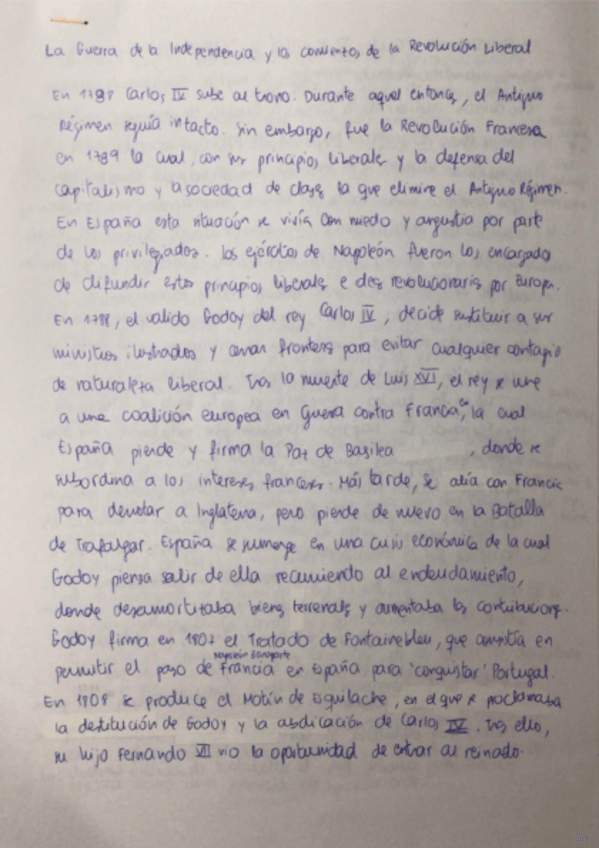 La Guerra de la Independencia y los comientos de la Revolución Liberal
En 1788 Carlos IV sube al trono. Durante aquel entonces, el Antiguo
Régimen seguía intacto. Sin embargo, fue la Revolución Francesa
en 1789 la cual, con sus principios liberales y la defensa del
capitalismo y la sociedad de clases la que elimine el Antiguo Régimen.
En España esta situación se vivía con miedo y angustia por parte
de los privilegiados. Los ejércitos de Napoleón fueron los encargado
de difundir estos principios liberales e ideas revolucionarias por Europa.
En 1788, el valido Godoy del rey Carlos IV, decide sustituir a sus
ministros ilustrados y cerrar fronteras para evitar cualquier contagio
de naturaleza liberal. Tras la muerte de Luis XVI, el rey se une
a una coalición europea en Guerra contra Francia, en la cual
España pierde y firma la Paz de Basilea , donde se
subordina a los intereses franceses. Más tarde, se alía con Francia
para derrotar a Inglaterra, pero pierde de nuevo en la Batalla
de Trafalgar. España se sumerge en una crisis económica de la cual
Godoy piensa salir de ella recurriendo al endeudamiento,
donde desamortizaba bienes terrenales y aumentaba las contribuciones.
Godoy firma en 1807 el Tratado de Fontainebleu, que consistía en
Napoleón Bonaparte
permitir el paso de Francia en España para 'conquistar' Portugal.
En 1808 se produce el Motín de Esquilache, en el que se proclamaba
la destitución de Godoy y la abdicación de Carlos IV. Tras ello,
su hijo Fernando VII vio la oportunidad de entrar al reinado.